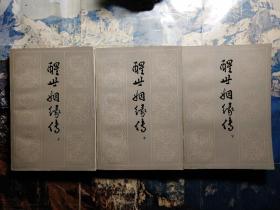 醒世姻缘传
醒世姻缘传
醒世姻缘传
下